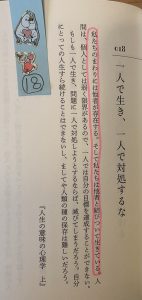 018
一人で生き、一人で対処するな
私たちのまわりには他者が存在する。そして私たちは他者と結びついて生きている。人
間は、個人としては弱く限界があるので、一人では自分の目標を達成することができない。
もしも一人で生き、問題に一人で対処しようとするならば、滅びてしまうだろう。自分
にとっての人生すら続けることはできないし、ましてや人類の種の保存は難しいだろう。
『人生の意味の心理学 上』
⑱